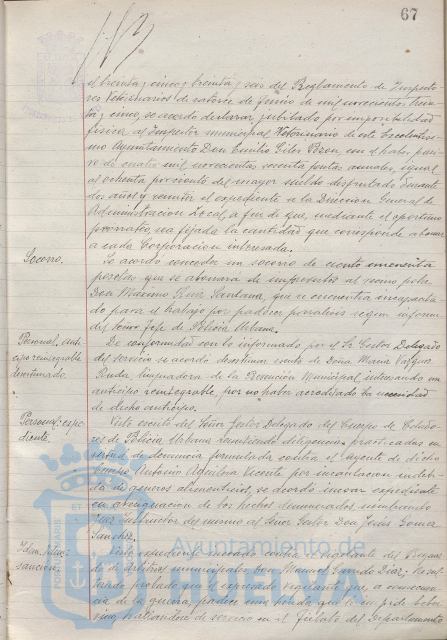 67
el treinta y cinco y treinta y seis del Reglamento de Inspecto-
res Veterinarios de catorce de Junio de mil novecientos trein-
ta y cinco, se acordó declarar jubilado por imposibilidad
física al Inspector municipal Veterinario de este Excelentísi-
mo Ayuntamiento Don Emilio Giles con el haber pasi-
vo de cuatro mil novecientas sesenta pesetas anuales, igual
al ochenta por ciento del mayor sueldo disfrutado durante
dos años y remitir el expediente a la Dirección General de
Administración Local, a fin de que, mediante el oportuno
prorrateo, sea fijada la cantidad que corresponde abonar
a cada Corporación interesada.
Socorro.
Se acordó conceder un socorro de ciento cincuenta
pesetas que se abonará de imprevistos al vecino pobre
Don Máximo Ruiz Santana, que se encuentra incapacita-
do para el trabajo por padecer parálisis según informe
del Señor Jefe de Policía Urbana.
Personal. anti-
cipo reintegrable
desestimado.
De conformidad con lo informado por el Sr. Gestor Delegado
del servicio se acordó desestimar escrito de Doña María Vargas
Rueda, limpiadora de la Prevención Municipal, interesando un
anticipo reintegrable, por no haber acreditado la necesidad
de dicho anticipo.
Personal: expe-
diente.
Visto escrito del Señor Gestor Delegado del Cuerpo de Celado-
res de Policía Urbana remitiendo diligencias practicadas en
virtud de denuncia formulada contra el agente de dicho
Cuerpo Antonio Aguilera Vicente por incautación indebi-
da de géneros alimenticios, se acordó incoar expediente
en averiguación de los hechos denunciados nombrando
Juez instructor del mismo al Señor Gestor Don Jesús Gómez
Sánchez.
Idem.
sanción.
Visto expediente incoado contra el vigilante del Cuerpo
de Arbitrios municipales Don Manuel Garrido Díaz; Resul-
tando probado que el expresado vigilante que, a consecuen-
cia de la guerra, padece una herida que le impide
hallándose de servicio en el Fielato del Departamento
Ayuntamiento de
HUELVA